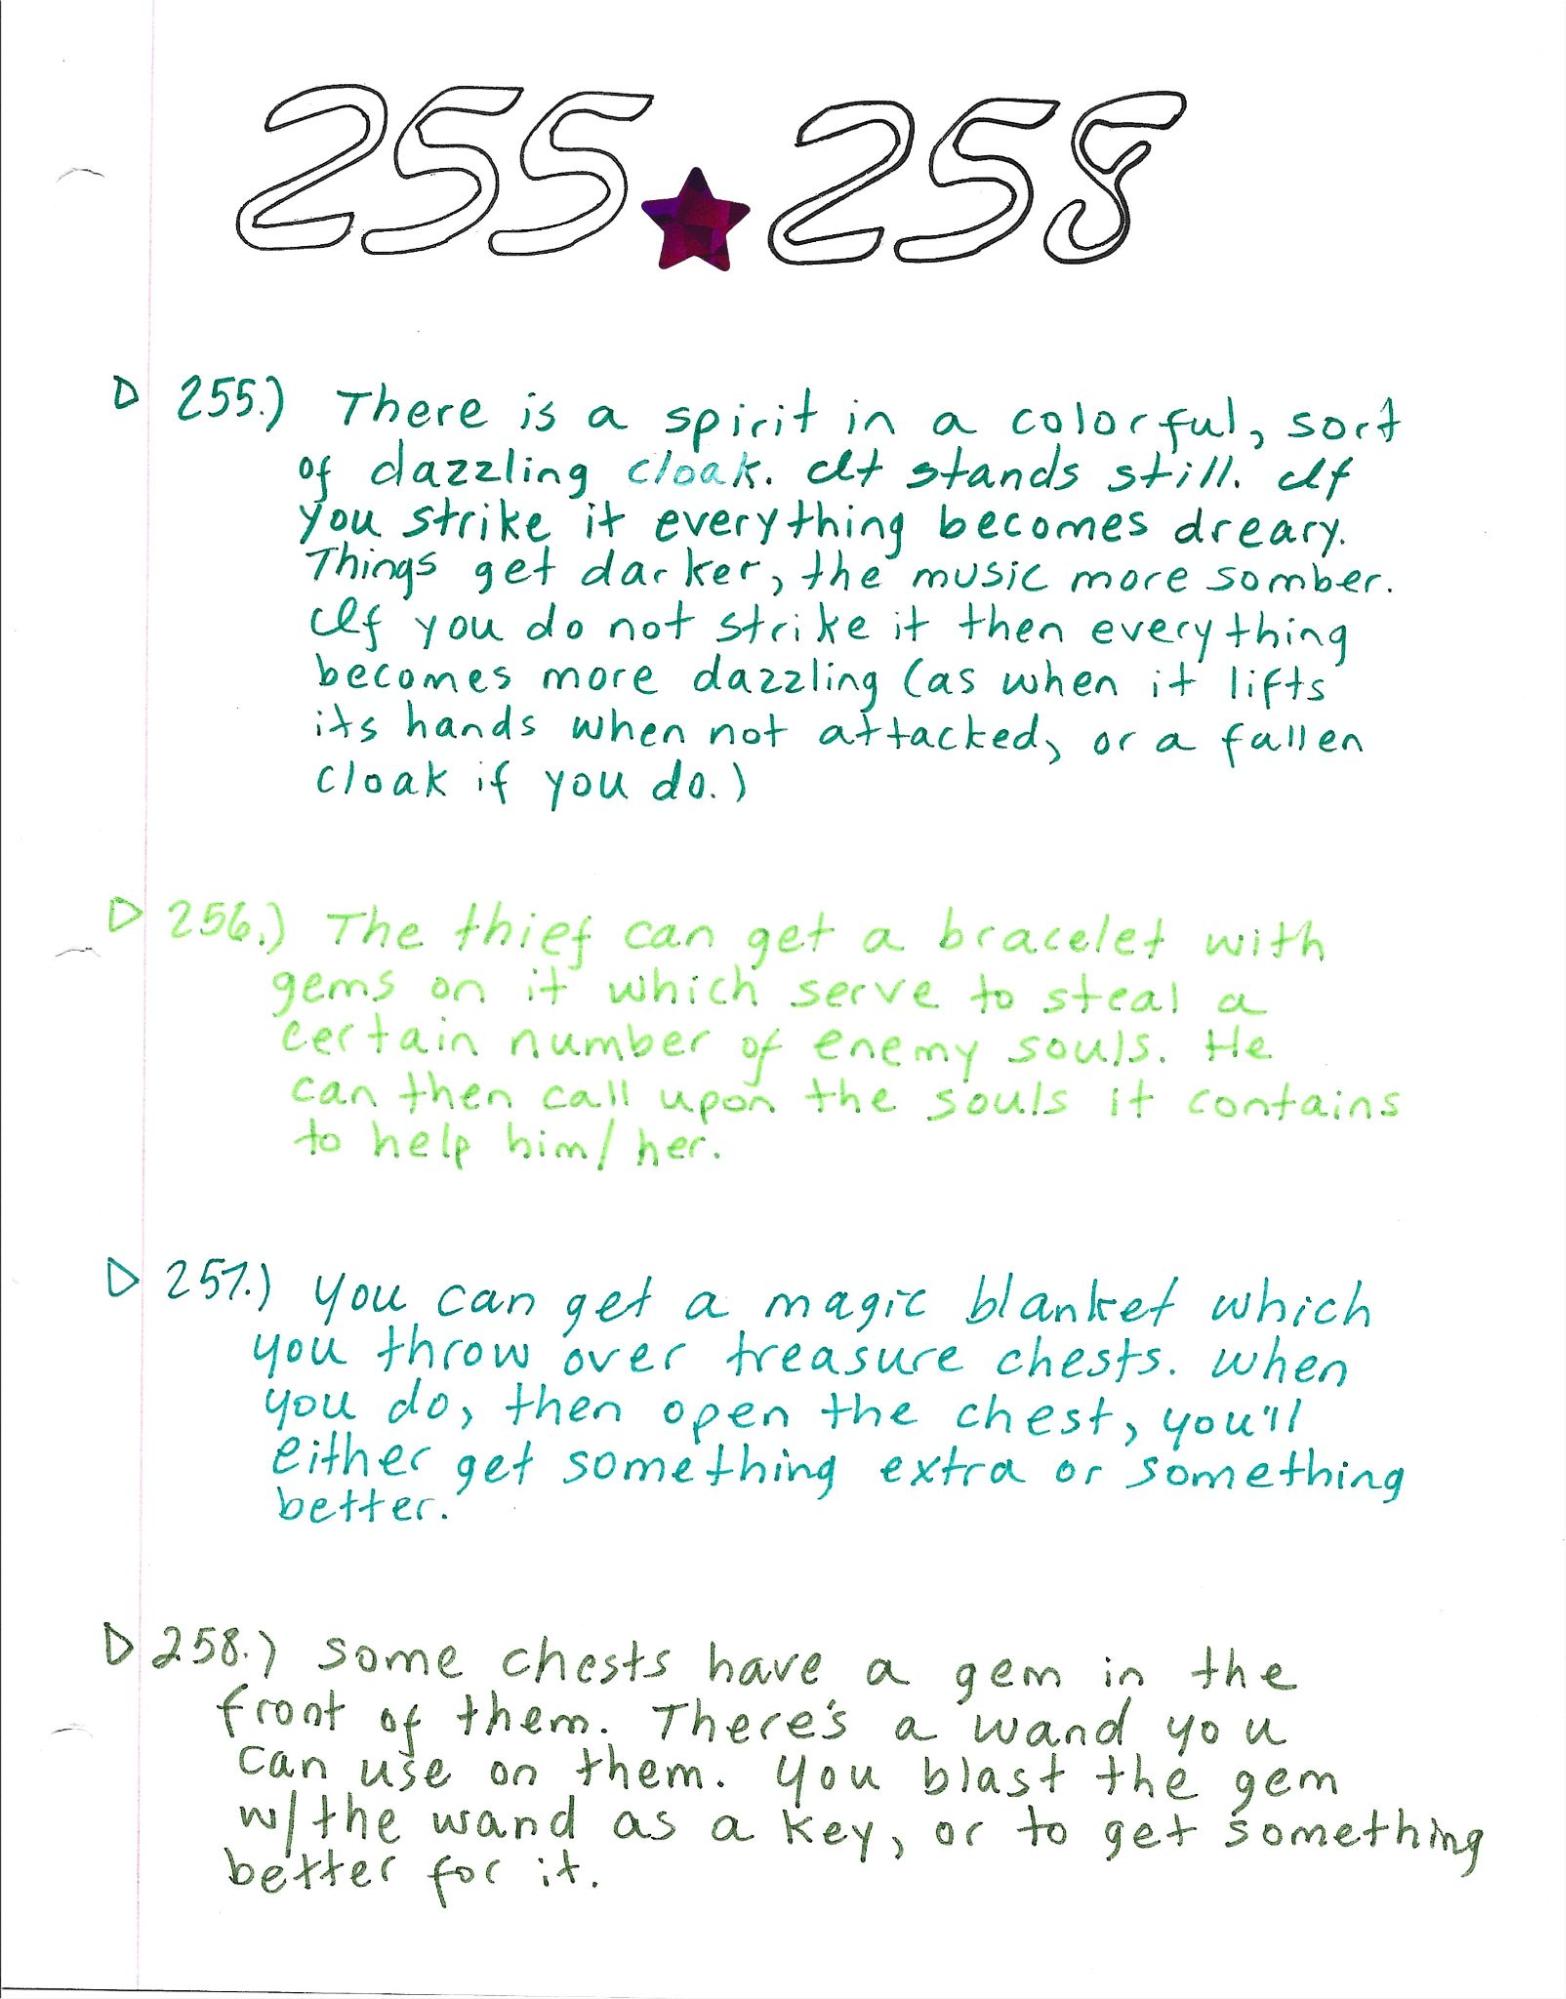 255 ★ 258
▷ 255.) There is a spirit in a colorful, sort
of dazzling cloak. It stands still. If
you strike it everything becomes dreary.
Things get darker, the music more somber.
If you do not strike it then everything
becomes more dazzling (as when it lifts
its hands when not attacked, or a fallen
cloak if you do.)
▷ 256.) The thief can get a bracelet with
gems on it which serve to steal a
certain number of enemy souls. He
can then call upon the souls it contains
to help him/her.
▷ 257.) You can get a magic blanket which
you throw over treasure chests. When
you do, then open the chest, you'll
either get something extra or something
better.
▷ 258.) Some chests have a gem in the
front of them. There's a wand you
can use on them. You blast the gem
w/the wand as a key, or to get something
better for it.